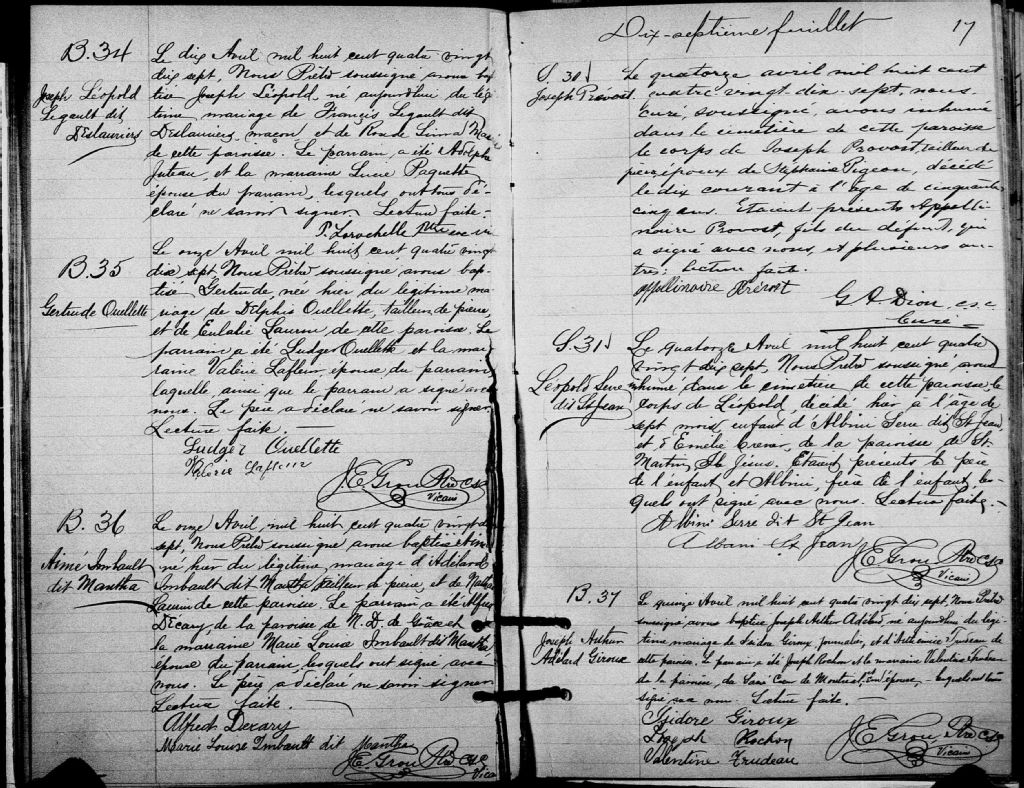 B.34
Joseph Léopold
Legault dit
Deslauriers
Le dix Avril mil huit cent quatre vingt
dix sept, Nous Prêtre soussigné avons bap
tisé Joseph Léopold, né aujourd'hui du légi
time mariage de Francis Legault dit
Deslauriers, maçon et de Rose de Lima
de cette paroisse. Le parrain a été Adolphe
Juteau, et la marraine Lucie Paquette
épouse du parrain, lesquels ont tous dé
claré ne savoir signer. Lecture faite.
P. Larochelle Ptre
B.35
Gertrude Ouellette
Le onze Avril mil huit cent quatre vingt
dix sept, Nous Prêtre soussigné avons bap
tisé Gertrude, née hier du légitime ma
riage de Delphis Ouellette, tailleur de pierre,
et de Eulalie Laurin de cette paroisse. Le
parrain a été Ludger Ouellette et la mar
raine Valérie Lafleur, épouse du parrain
laquelle ainsi que le parrain a signé avec
nous. Le père a déclaré ne savoir signer.
Lecture faite.
Ludger Ouellette
Valérie Lafleur
J E Grou Ptre CSC
Vicaire
B.36
Aimé Imbault
dit Mantha
Le onze Avril, mil huit cent quatre vingt dix
sept, Nous Prêtre soussigné avons baptisé Aimé
né hier du légitime mariage d'Adélard
Imbault dit Mantha tailleur de pierre, et de
Laurin de cette paroisse. Le parrain a été Alfred
Décary, de la paroisse de N. D. de Grâce et
la marraine Marie Louise Imbault dit Mantha
épouse du parrain, lesquels ont signé avec
nous. Le père a déclaré ne savoir signer
Lecture faite.
Alfred Decary
Marie Louise Imbault dit Mantha
J E Grou Ptre CSC
Vicaire
Dix-septième feuillet
17
S. 30
Joseph Prévost
Le quatorze avril mil huit cent
quatre-vingt dix-sept, nous
curé, soussigné, avons inhumé
dans le cimetière de cette paroisse
le corps de Joseph Provost, tailleur de
pierre, époux de Stéphanie Pigeon, décédé
le dix courant à l'âge de cinquante
cinq ans. Etaient présents Appolli
naire Provost, fils du défunt, qui
a signé avec nous, et plusieurs au
tres; lecture faite.
Appolinaire Prévost
G A Dion c.s.c
Curé
S. 31
Léopold Serre
dit St Jean
Le quatorze Avril mil huit cent quatre
vingt dix sept, Nous Prêtre soussigné avons
inhumé dans le cimetière de cette paroisse, le
corps de Léopold, décédé hier à l'âge de
sept mois, enfant d'Albini Serre dit St Jean,
et d'Emélie de la paroisse de St
Martin, Ile Jésus. Etaient présents le père
de l'enfant et Albini, frère de l'enfant, les
quels ont signé avec nous. Lecture faite.
Albini Serre dit St Jean
Albani St Jean
J E Grou Ptre CSC
Vicaire
B.37
Joseph Arthur
Adélard Giroux
Le quinze Avril mil huit cent quatre vingt dix sept, Nous Prêtre
soussigné, avons baptisé Joseph Arthur Adélard né aujourd'hui du légi
time mariage de Isidore Giroux, journalier, et d' Trudeau de
cette paroisse. Le parrain a été Joseph Rochon et la marraine Valentine Trudeau
de la paroisse du Sacré Coeur de Montréal, son épouse, lesquels ont tous
signé avec nous. Lecture faite.
Isidore Giroux
Joseph Rochon
Valentine Trudeau
J E Grou Ptre CSC
Vicaire